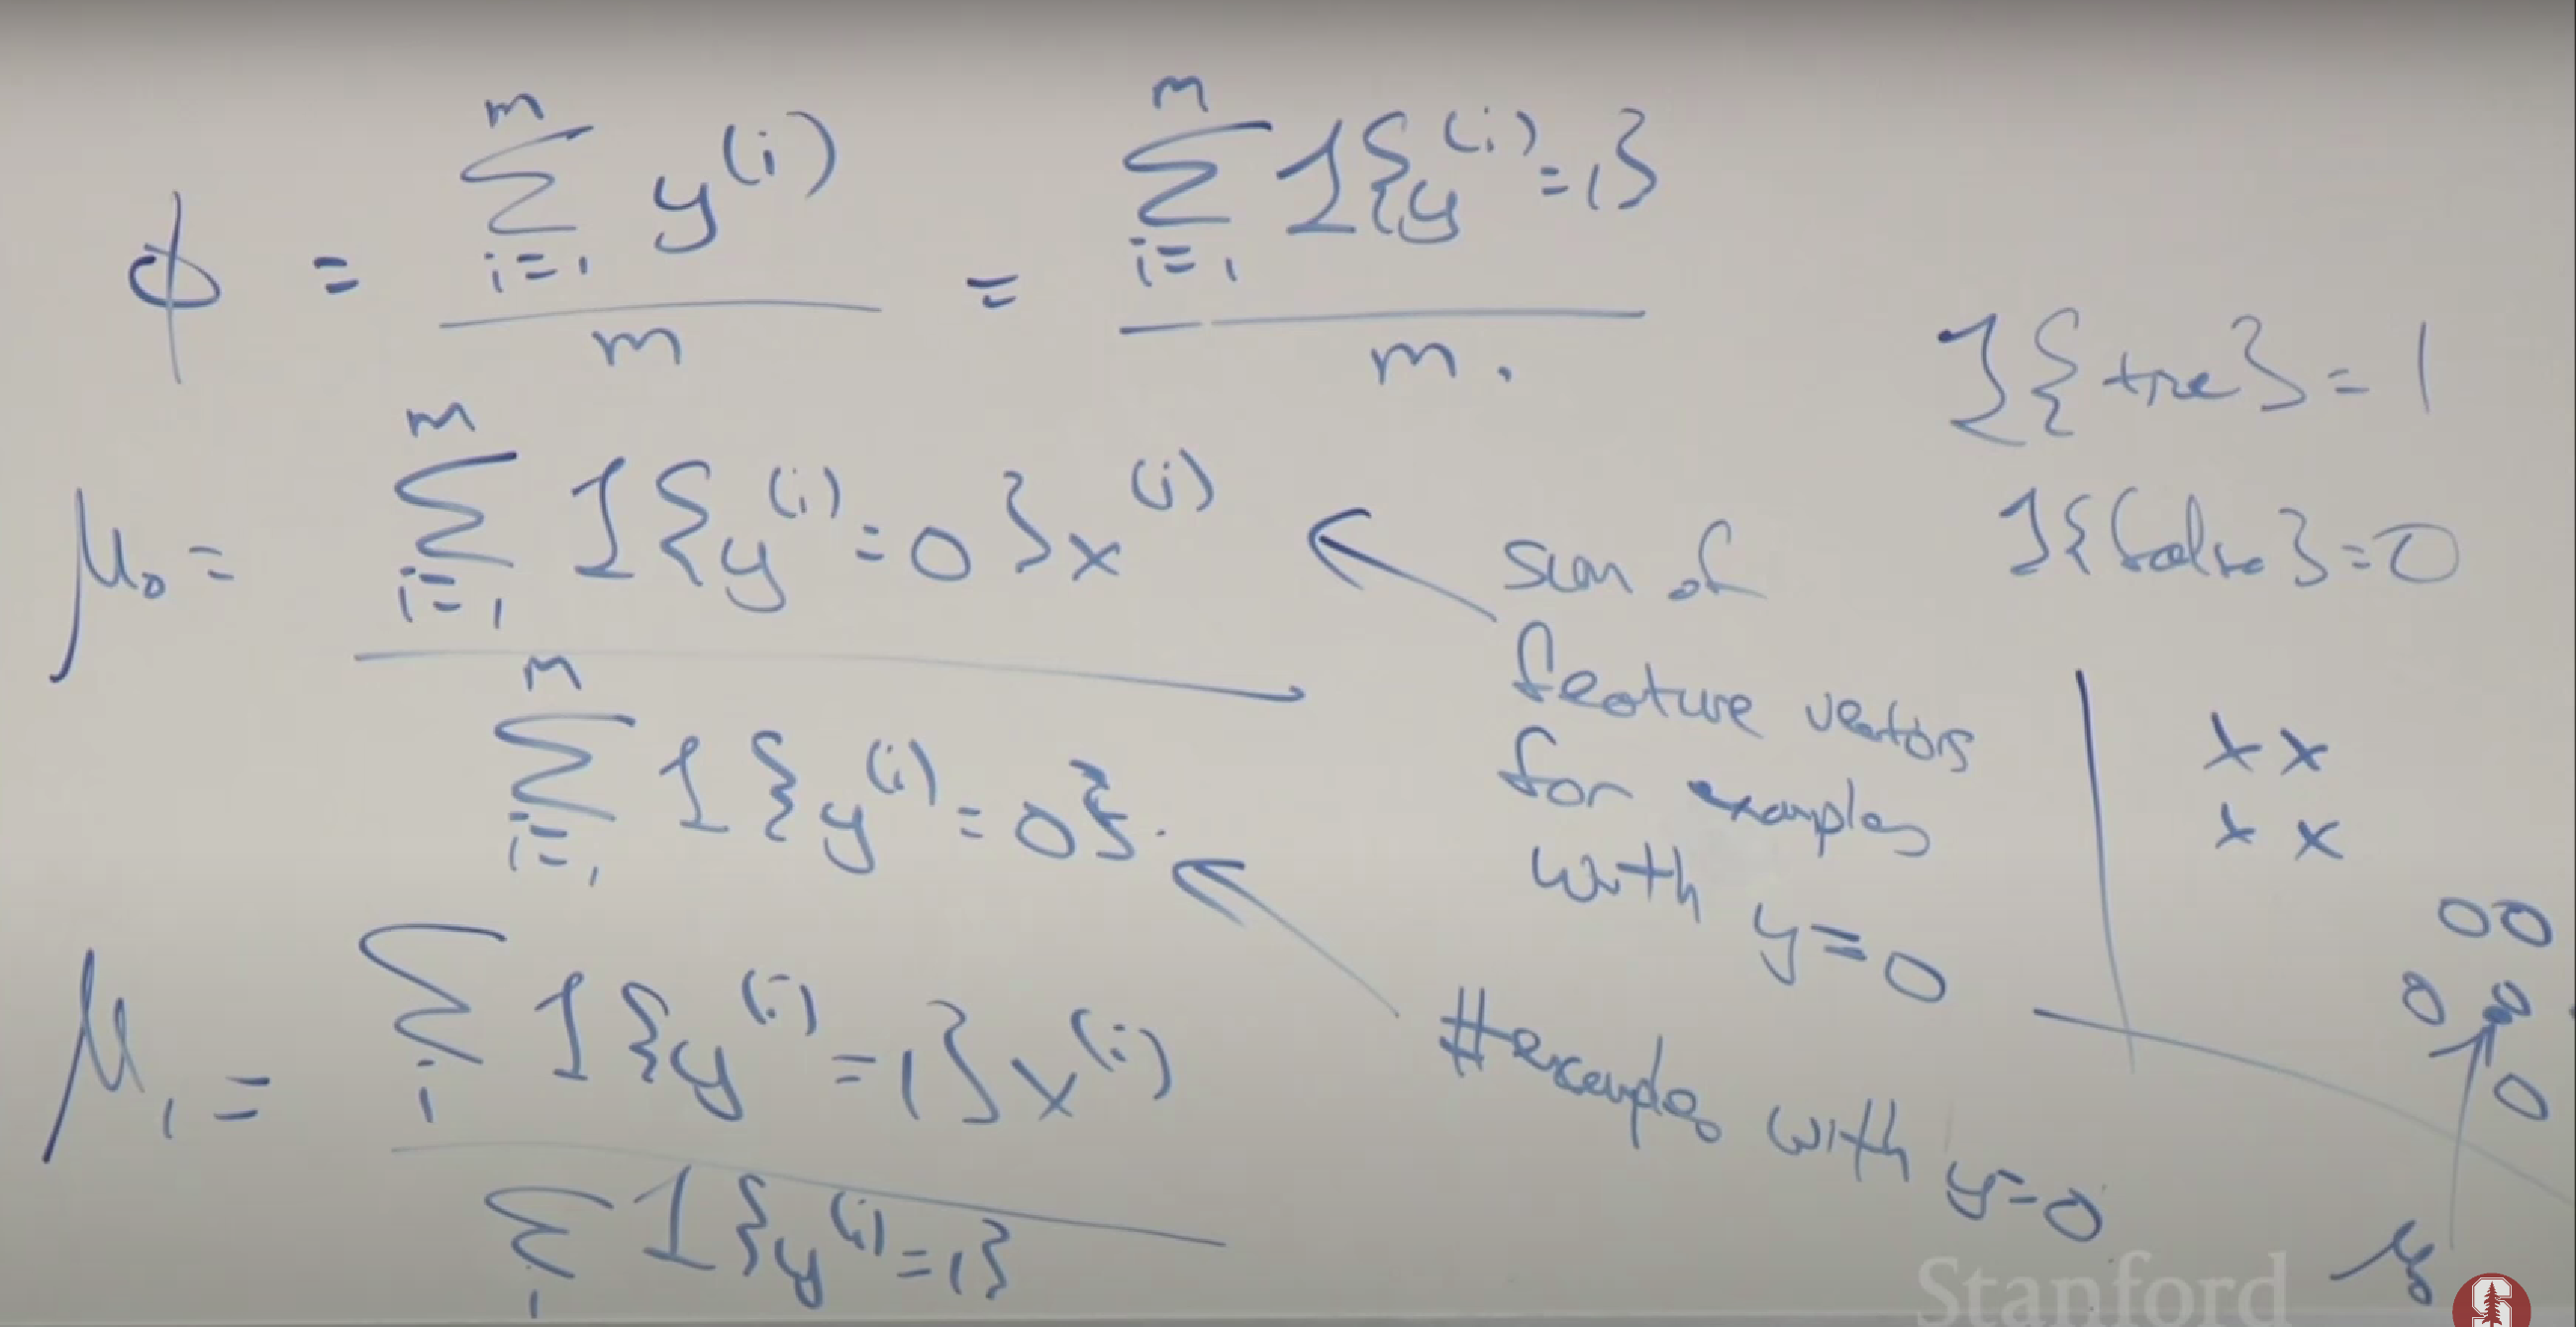 ϕ = Σ_{i=1}^{m} y^{(i)} / m = Σ_{i=1}^{m} 1{y^{(i)}=1} / m.
1{true} = 1
1{false} = 0
μ₀ = Σ_{i=1}^{m} 1{y^{(i)}=0} x^{(i)} / Σ_{i=1}^{m} 1{y^{(i)}=0}.
sum of
feature vectors
for examples
with y=0
#examples with y=0
μ₁ = Σ_{i} 1{y^{(i)}=1} x^{(i)} / Σ_{i} 1{y^{(i)}=1}
x x
x x
o o
o o
o
μ₀
Stanford
S